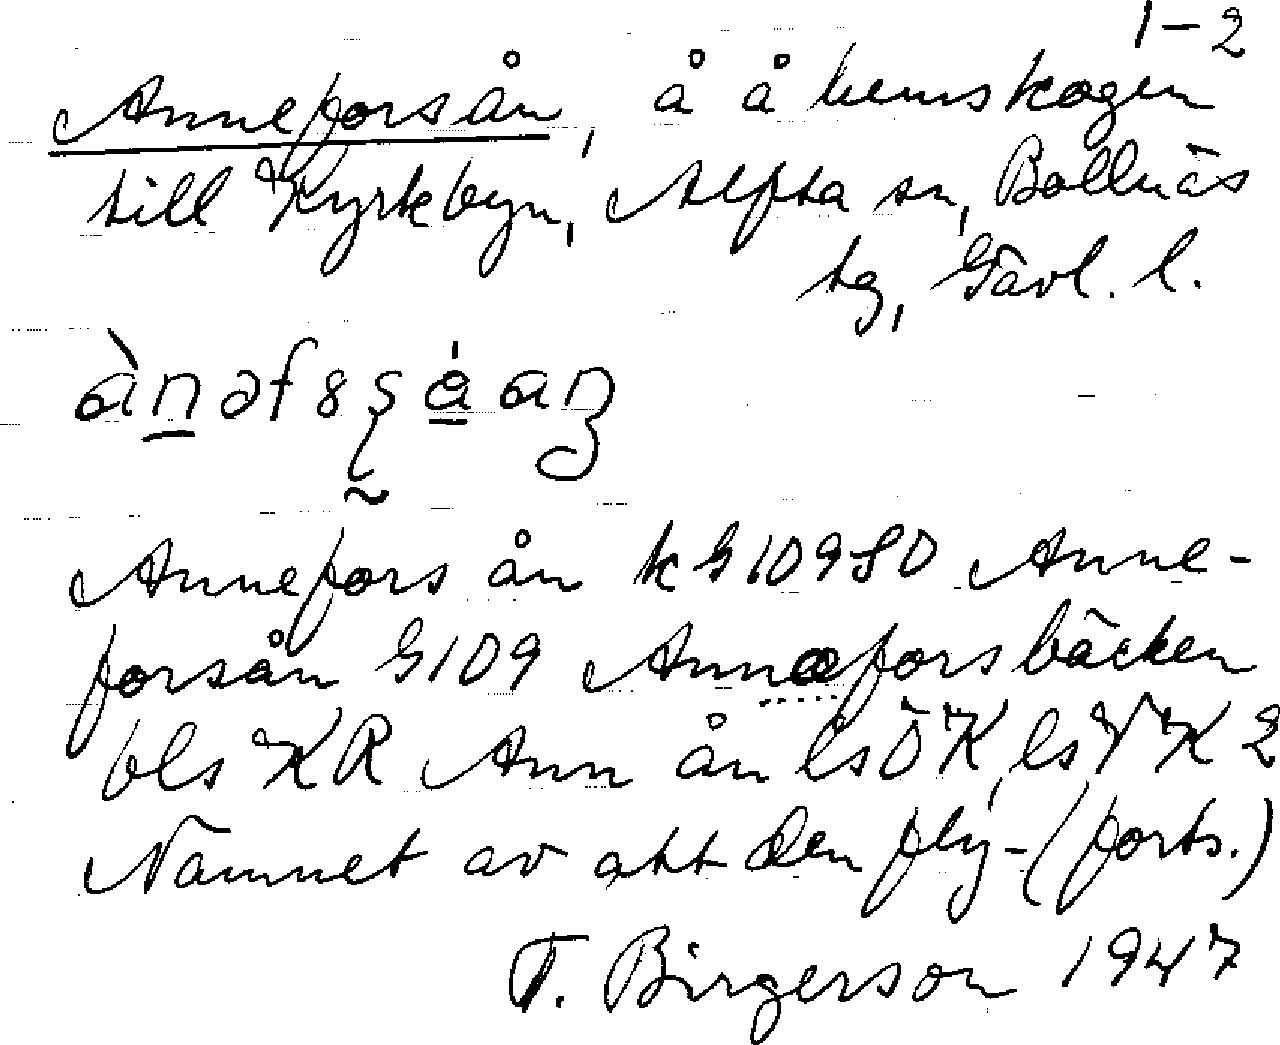 1-2
Anneforsån, å å hemskogen
till Kyrkbyn, Alfta sn, Bollnäs
tg, Gävl. l.
Annefors ån k G109SO Anne-
forsån G109 Annæforsbäcken
bls KR Ann ån ls ÖK, ls VK 2
Namnet av att den fly- (forts.)
T. Birgerson 1947